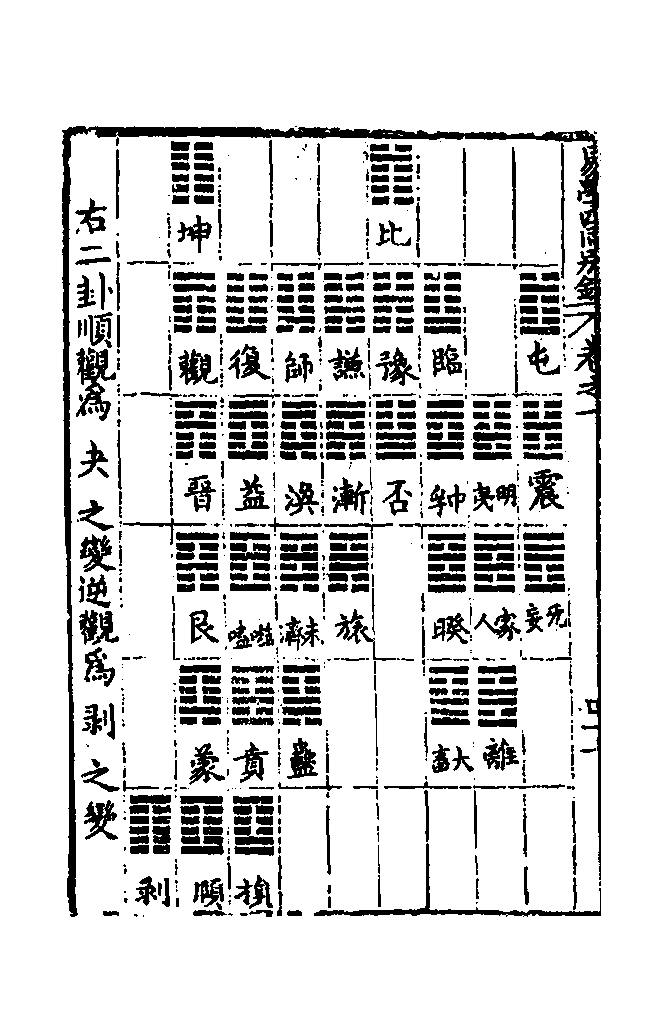 比　坤
屯　臨　豫　謙　師　復　觀
震　明夷　中孚　否　漸　渙　益　晉
无妄　家人　睽　旅　未濟　噬嗑　艮
離　大畜　蠱　賁　蒙
損　頤　剥
右二卦順觀為夬之變逆觀為剥之變